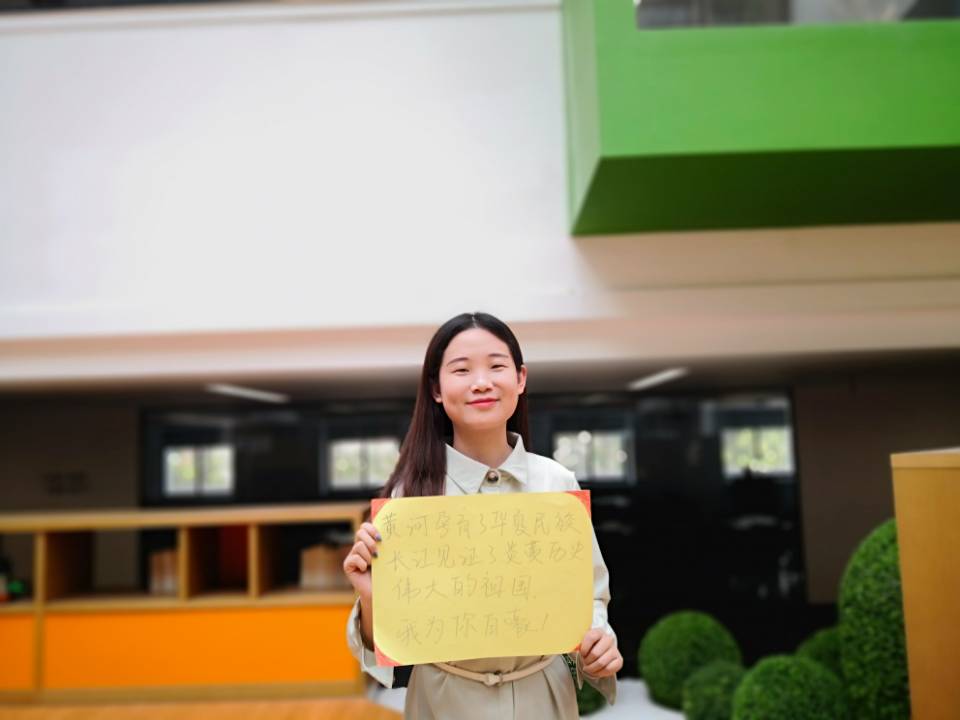 黄河孕育了华夏民族
长江见证了炎黄历史
伟大的祖国
我为你自豪!